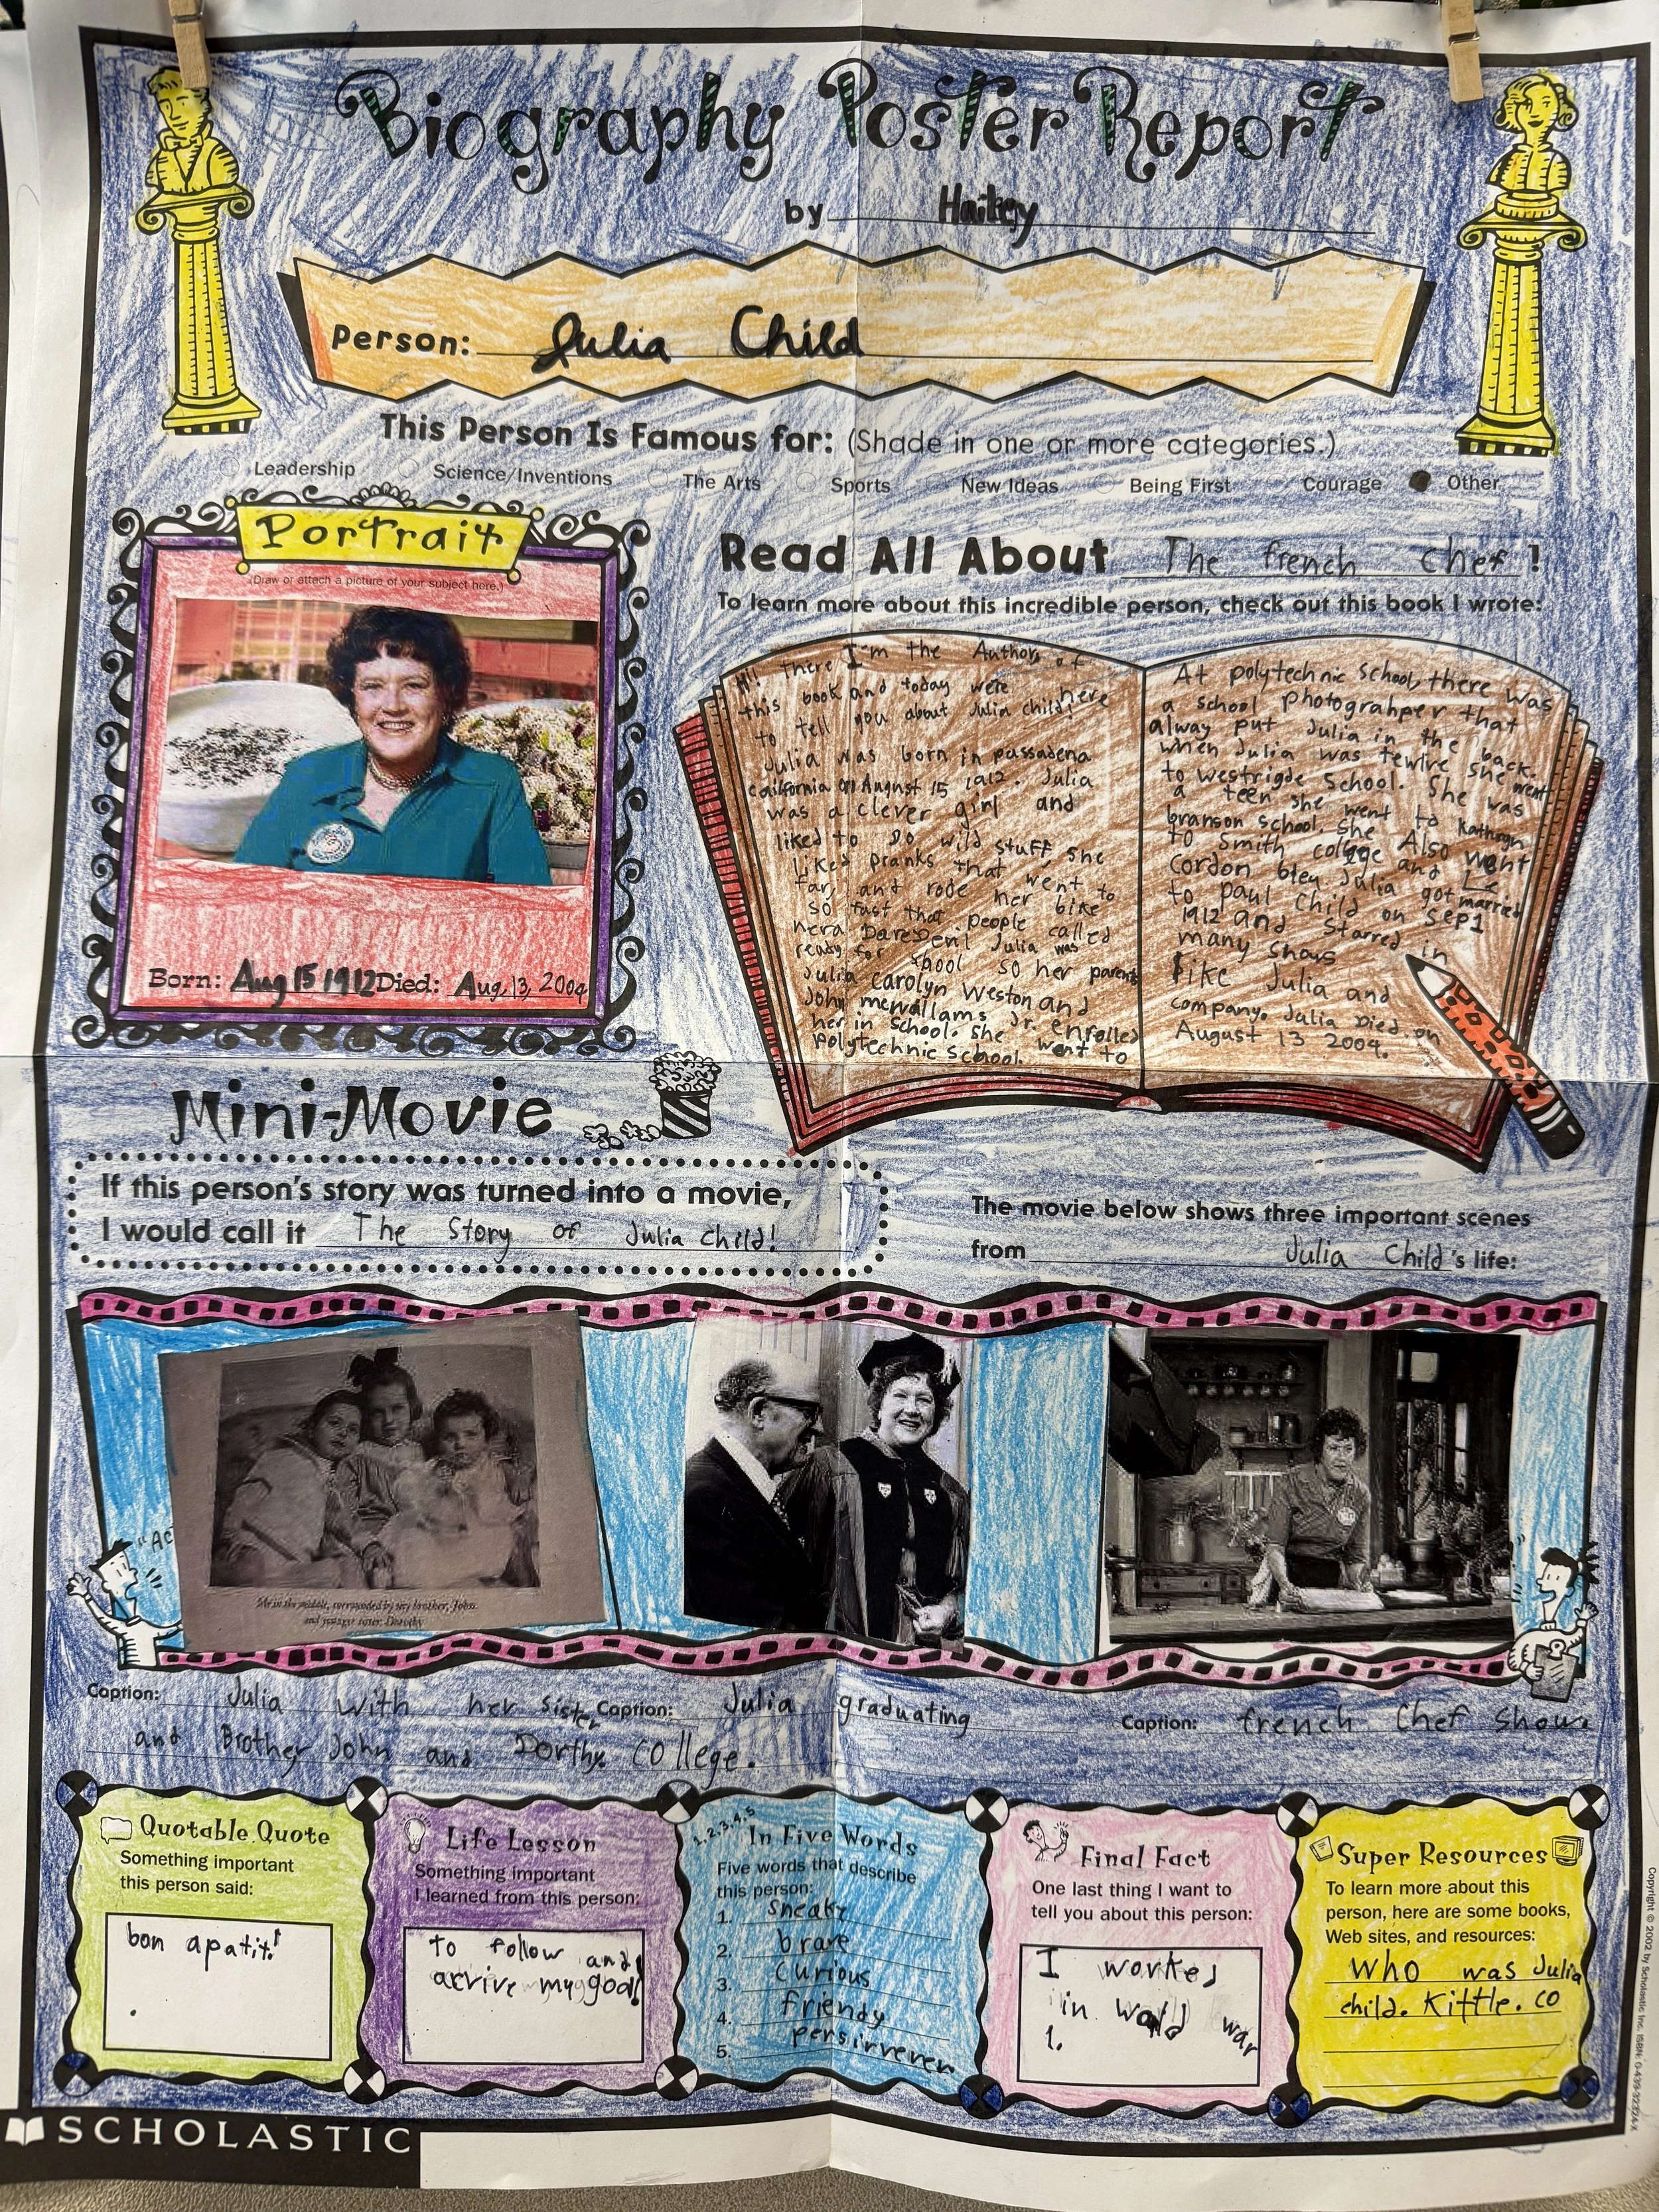 Biography Poster Report
by
Person: Julia Child
This Person Is Famous for: (Shade in one or more categories.)
Leadership Science/Inventions The Arts Sports New Ideas Being First Courage Other
Portrait
(Draw or attach a picture of your subject here.)
Born: Aug 15 1912 Died: Aug, 13, 2004
Read All About The french chef !
To learn more about this incredible person, check out this book I wrote:
Hi there I'm the Author of
this book and today were here
to tell you about Julia child!
Julia was born in passadena
california on August 15 1912. Julia
was a clever girl and
liked to Do wild stuff. She
Liked pranks that went to
far, and rode her bike
so fast that people called
her a DareDevil Julia was
ready for school so her parents
Julia carolyn Weston and
John mcwallams Jr. enrolled
her in school. She went to
polytechnic School.
At polytechnic school, there was
a school photograhper that
alway put Julia in the back.
when Julia was tewlve she went
to westrigde School. She was
a teen she went to Kathryn
branson school. She Also went
to Smith collge and Le
Cordon bleu. Julia got married
to paul Child on sep1
1912 and starred in
many shows
like Julia and
company. Julia Died on
August 13 2004.
Mini-Movie
If this person's story was turned into a movie,
I would call it The Story of Julia Child!
The movie below shows three important scenes
from Julia Child's life:
"AC
Me in the middle, surrounded by my brother, John,
and younger sister, Dorothy
Caption: Julia with her sister
and Brother John and Dorthy.
Caption: Julia graduating
college.
Caption: french Chef show.
Quotable Quote
Something important
this person said:
bon apatit!
Life Lesson
Something important
I learned from this person:
to follow and
acrive my goal!
1, 2, 3, 4, 5
In Five Words
Five words that describe
this person:
1. sneaky
2. brave
3. curious
4. friendy
5. persirverer
Final Fact
One last thing I want to
tell you about this person:
I worked
in world war
1.
Super Resources
To learn more about this
person, here are some books,
Web sites, and resources:
Who was Julia
child. Kittle. co
SCHOLASTIC
Copyright © 2002 by Scholastic Inc.